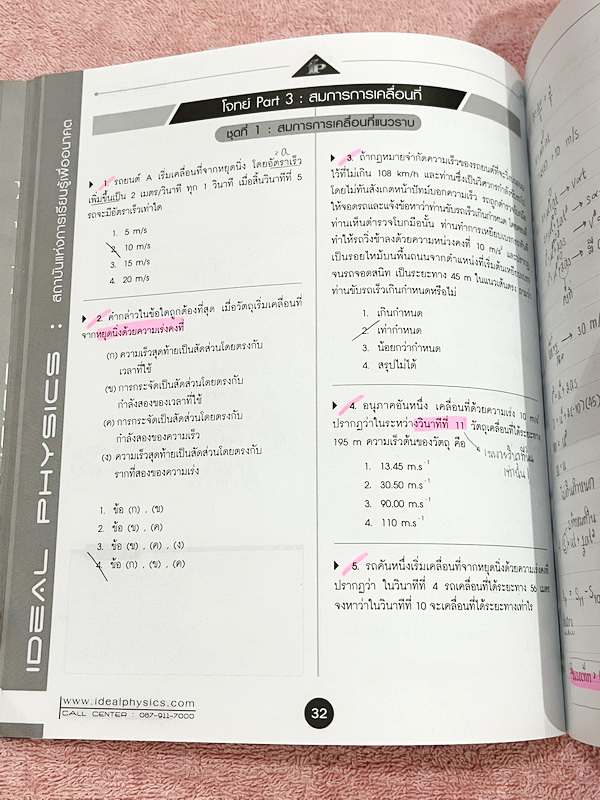 โจทย์ Part 3 : สมการการเคลื่อนที่
ชุดที่ 1 : สมการการเคลื่อนที่แนวราบ
1. รถยนต์ A เริ่มเคลื่อนที่จากหยุดนิ่ง โดยอัตราเร็ว
เพิ่มขึ้นเป็น 2 เมตร/วินาที ทุก 1 วินาที เมื่อสิ้นวินาทีที่ 5
รถจะมีอัตราเร็วเท่าใด
1. 5 m/s
2. 10 m/s
3. 15 m/s
4. 20 m/s
2. คำกล่าวในข้อใดถูกต้องที่สุด เมื่อวัตถุเริ่มเคลื่อนที่
จากหยุดนิ่งด้วยความเร่งคงที่
(ก) ความเร็วสุดท้ายเป็นสัดส่วนโดยตรงกับ
เวลาที่ใช้
(ข) การกระจัดเป็นสัดส่วนโดยตรงกับ
กำลังสองของเวลาที่ใช้
(ค) การกระจัดเป็นสัดส่วนโดยตรงกับ
กำลังสองของความเร็ว
(ง) ความเร็วสุดท้ายเป็นสัดส่วนโดยตรงกับ
รากที่สองของความเร่ง
1. ข้อ (ก) , (ข)
2. ข้อ (ข) , (ค)
3. ข้อ (ข) , (ค) , (ง)
4. ข้อ (ก) , (ข) , (ค)
3. ถ้ากฎหมายจำกัดความเร็วของรถยนต์ที่จะวิ่ง
ไว้ที่ไม่เกิน 108 km/h และท่านซึ่งเป็นวิศวกร
โดยไม่ทันสังเกตหน้าปัทม์บอกความเร็ว รถถูกตำรวจ
ให้จอดรถและแจ้งข้อหาว่าท่านขับรถเร็วเกินกำหนด
ท่านเห็นตำรวจโบกมือนั้น ท่านทำการเหยียบเบรก
ทำให้รถวิ่งช้าลงด้วยความหน่วงคงที่ 10 m/s²
เป็นรอยไหม้บนพื้นถนนจากตำแหน่งที่เริ่มต้น
จนรถจอดสนิท เป็นระยะทาง 45 m ในแนวเส้นตรง
ท่านขับรถเร็วเกินกำหนดหรือไม่
1. เกินกำหนด
2. เท่ากำหนด
3. น้อยกว่ากำหนด
4. สรุปไม่ได้
4. อนุภาคอันหนึ่ง เคลื่อนที่ด้วยความเร่ง 10 m/s²
ปรากฏว่าในระหว่างวินาทีที่ 11 วัตถุเคลื่อนที่ได้ระยะทาง
195 m ความเร็วต้นของวัตถุ คือ
1. 13.45 m.s⁻¹
2. 30.50 m.s⁻¹
3. 90.00 m.s⁻¹
4. 110 m.s⁻¹
5. รถคันหนึ่งเริ่มเคลื่อนที่จากหยุดนิ่งด้วยความเร่งคงที่
ปรากฏว่า ในวินาทีที่ 4 รถเคลื่อนที่ได้ระยะทาง 56 เมตร
จงหาว่าในวินาทีที่ 10 จะเคลื่อนที่ได้ระยะทางเท่าไร
IDEAL PHYSICS : สถาบันแห่งการเรียนรู้เพื่ออนาคต
www.idealphysics.com
CALL CENTER : 087-911-7000
32